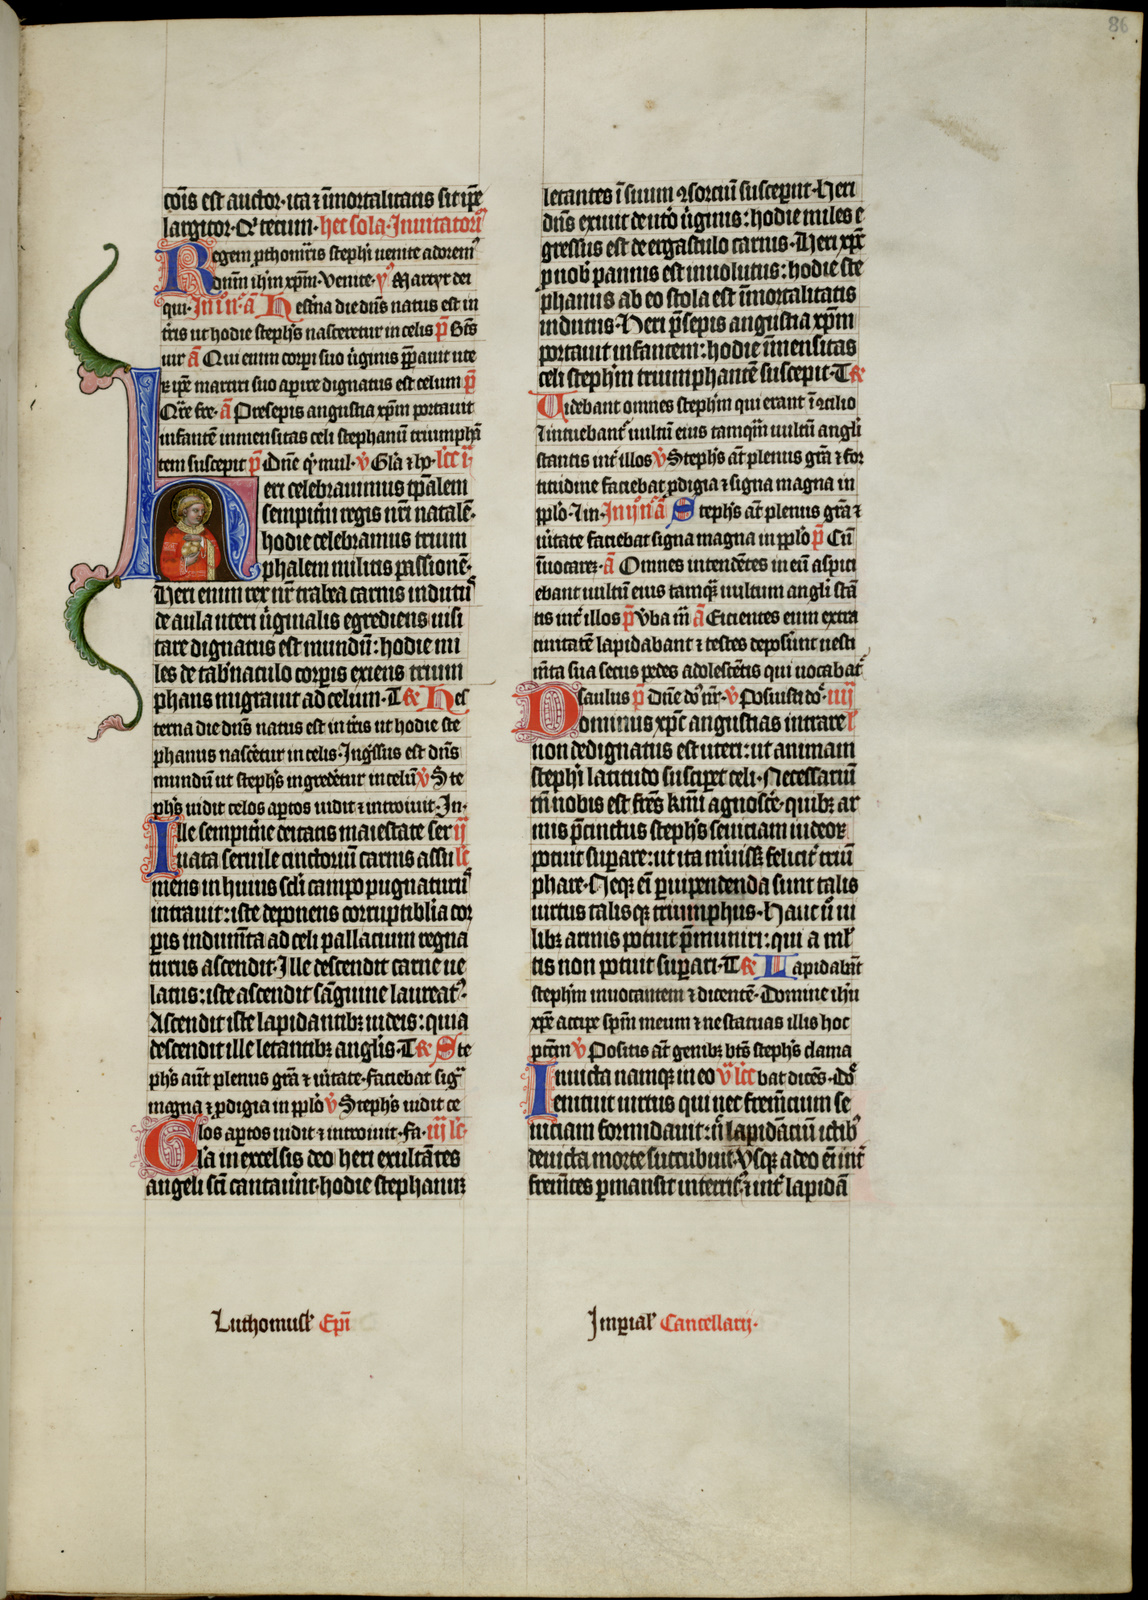 86
cōis est auctor · ita ⁊ īmortalitatis sit ip̄e
largitor · Q̇ tecum · hec sola · Inuitatoriū
Regem ꝓthomr̄is steph̄i uenite adorem᷒
dnm̄ ih̄m xp̄m · Venite · p̄s Martyr dei
qui · In i n̊ · a᷒ Hest̄na die dn̄s natus est in
t̄ris ut hodie steph̄s nasceretur in celis p̄ Bt̄s
uir a᷒ Qui enim corpi suo ūginis p̄parauit ute
rum ip̄e martiri suo apire dignatus est celum p̄
Qr̄e fre · a᷒ Presepis angustia xp̄m portauit
infantē inmensitas celi stephanū triumphā
tem suscepit p̄ Dn̄e q̇ mul · v̄ Gl̄a ⁊ ho · lc̄c i᷒
Heri celebrauimus tp̄alem
sempit̄ni regis nr̄i natalē ·
hodie celebramus trium
phalem militis passionē ·
Heri enim rex nr̄ trabea carnis indut᷒
de aula uteri ūginalis egrediens uisi
tare dignatus est mundū : hodie mi
les de tab̄naculo corp̄is exiens trium
phans migrauit ad celum · T᷒ R̄ Hes
terna die dn̄s natus est in t̄ris ut hodie ste
phanus nascētur in celis · Ing̊ssus est dn̄s
mundū ut steph̄s ingredētur in celū v̄ Ste
ph̄s uidit celos aꝑtos uidit ⁊ introiuit · In ·
Ille sempit̄ne deitatis maiestate ser ij
uata seruile cinctoriū carnis assu lc̄
mens in huius sc̄li campo pugnaturū
intrauit : iste deponens corruptiblia cor
ꝑis indum̄ta ad celi pallacium regna
turus ascendit · Ille descendit carne ue
latus : iste ascendit sāguine laureat᷒ ·
Ascendit iste lapidantibꝫ iudeis : quia
descendit ille letantibꝫ angl̄is · T᷒ R̄ Ste
ph̄s aut̄ plenus grā ⁊ ūitate · faciebat sigᷓ
magna ⁊ ꝓdigia in ppl̄o v̄ Steph̄s uidit ce
los aꝑtos uidit ⁊ introiuit · fa · iij lc̄
Gl̄a in excelsis deo heri exultātes
angeli sc̄i cantaūnt · hodie stephanū
letantes ī suum ꝯsorciū susceꝑunt · Heri
dn̄s exiuit de ut̄o ūginis : hodie miles e
gressus est de ergastulo carnis · Heri xp̄c
ꝓ nob᷒ pannis est inuolutus : hodie ste
phanus ab eo stola est īmortalitatis
indutus · Heri p̄sepis angustia xp̄m
portauit infantem : hodie īmensitas
celi steph̄m triumphantē suscepit · T᷒ R̄
Uidebant omnes steph̄m qui erant ī ꝯcilio
⁊ intuebant᷒ uultū eius tamqm̄ uultū angli
stantis int̄ illos v̄ Steph̄s at̄ plenus grā ⁊ for
titudine faciebat ꝓdigia ⁊ signa magna in
ppl̄o · ⁊ in · In ij n̊ a᷒ Steph̄s at̄ plenus grā ⁊
ūitate faciebat signa magna in ppl̄o p̄ Cū
īuocarē · a᷒ Omnes intendētes in eū aspici
ebant uultū eius tamqᷓ uultum angli stā
tis int̄ illos p̄ Vba m̄ a᷒ Eicientes eum extra
ciuitatē lapidabant ⁊ testes deposūnt uesti
m̄ta sua secus pedes adolescētis qui uocabat᷒
saulus p̄ Dn̄e do᷒ nr̄ · v̄ Posuisti do᷒ · iiij
Dominus xp̄c angustias intrare l᷒
non dedignatus est uteri : ut animam
steph̄i latitudo susciꝑet celi · Necessariū
tn̄ nobis est frēs kmi agnoscē · quibꝫ ar
mis p̄cinctus steph̄s seuiciam iudeoꝝ
potuit suꝑare : ut ita m̄uiss᷒ felicit̄ triū
phare · Neqꝫ ei᷒ ꝑuipendenda sunt talis
uirtus talisqꝫ triumphus · Hauc ū ui
libꝫ armis potuit p̄muniri : qui a ml̄
tis non potuit suꝑari · T᷒ R̄ Lapidabāt
steph̄m inuocantem ⁊ dicentē · Domine ih̄u
xp̄e accipe sp̄m meum ⁊ ne statuas illis hoc
pctm̄ v̄ Positis at̄ genibꝫ bt̄s steph̄s clama
Inuicta namqꝫ in eo v᷒ lc̄c bat dicēs · Do᷒
enituit uirtus qui nec frem̄cium se
uiciam formidauit : n̄ lapidāciū ictib᷒
deuicta morte succubuit · Vsqꝫ adeo ei᷒ int̄
frem̄tes ꝑmansit int̄rit᷒ : ⁊ int̄ lapidā
Luthomusł Ep̄i
Imꝑial᷒ Cancellarij ·